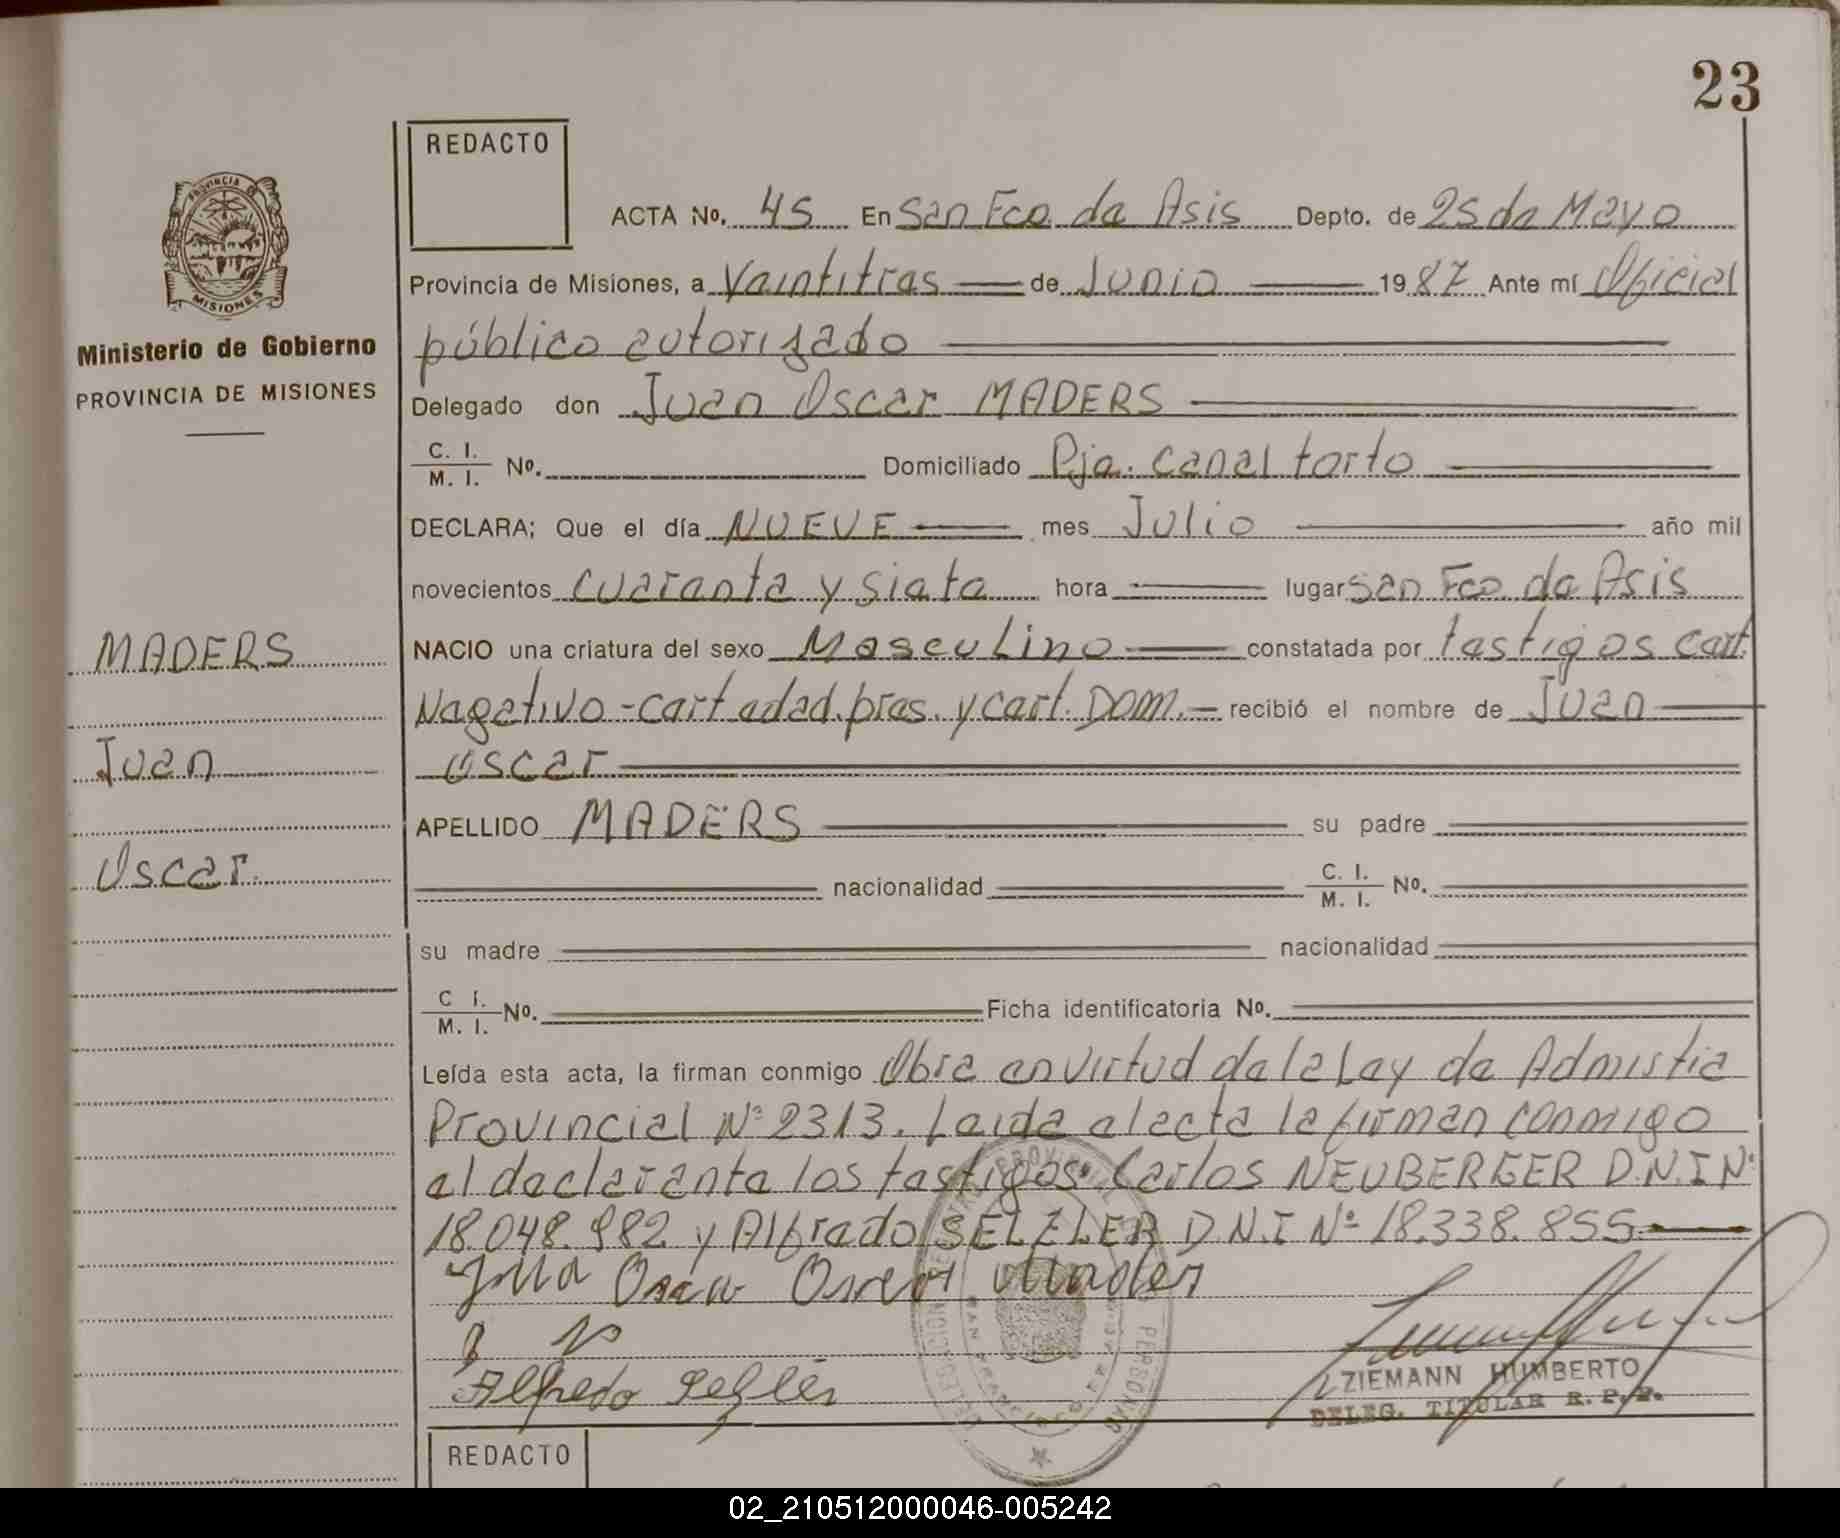 23
REDACTO
ACTA Nº. 45 En San Fco. de Asis Depto. de 25 de Mayo
Provincia de Misiones, a Veintitres de Junio 1987 Ante mí Oficial
público autorizado
Delegado don Juan Oscar MADERS
C. I.
M. I. Nº. Domiciliado Pje. Canal torto
DECLARA; Que el día NUEVE mes Julio año mil
novecientos cuarenta y siete hora lugar San Fco. de Asis
NACIO una criatura del sexo Masculino constatada por testigos cert.
Negativo - cert edad. pres. y cert. Dom. - recibió el nombre de Juan
Oscar
APELLIDO MADERS su padre
nacionalidad C. I.
M. I. Nº.
su madre nacionalidad
C I.
M. I. Nº. Ficha identificatoria Nº.
Leída esta acta, la firman conmigo Obra en virtud de la Ley de Admistia
Provincial Nº 2313. Leida el acta la firman conmigo
el declarante los testigos: Carlos NEUBERGER D.N.I Nº
18.048.982 y Alfredo SELZLER D.N.I Nº 18.338.855
Alfredo Selzler
ZIEMANN HUMBERTO
DELEG. TITULAR R. P. P.
REDACTO
PROVINCIA DE
MISIONES
Ministerio de Gobierno
PROVINCIA DE MISIONES
MADERS
Juan
Oscar.
02_210512000046-005242